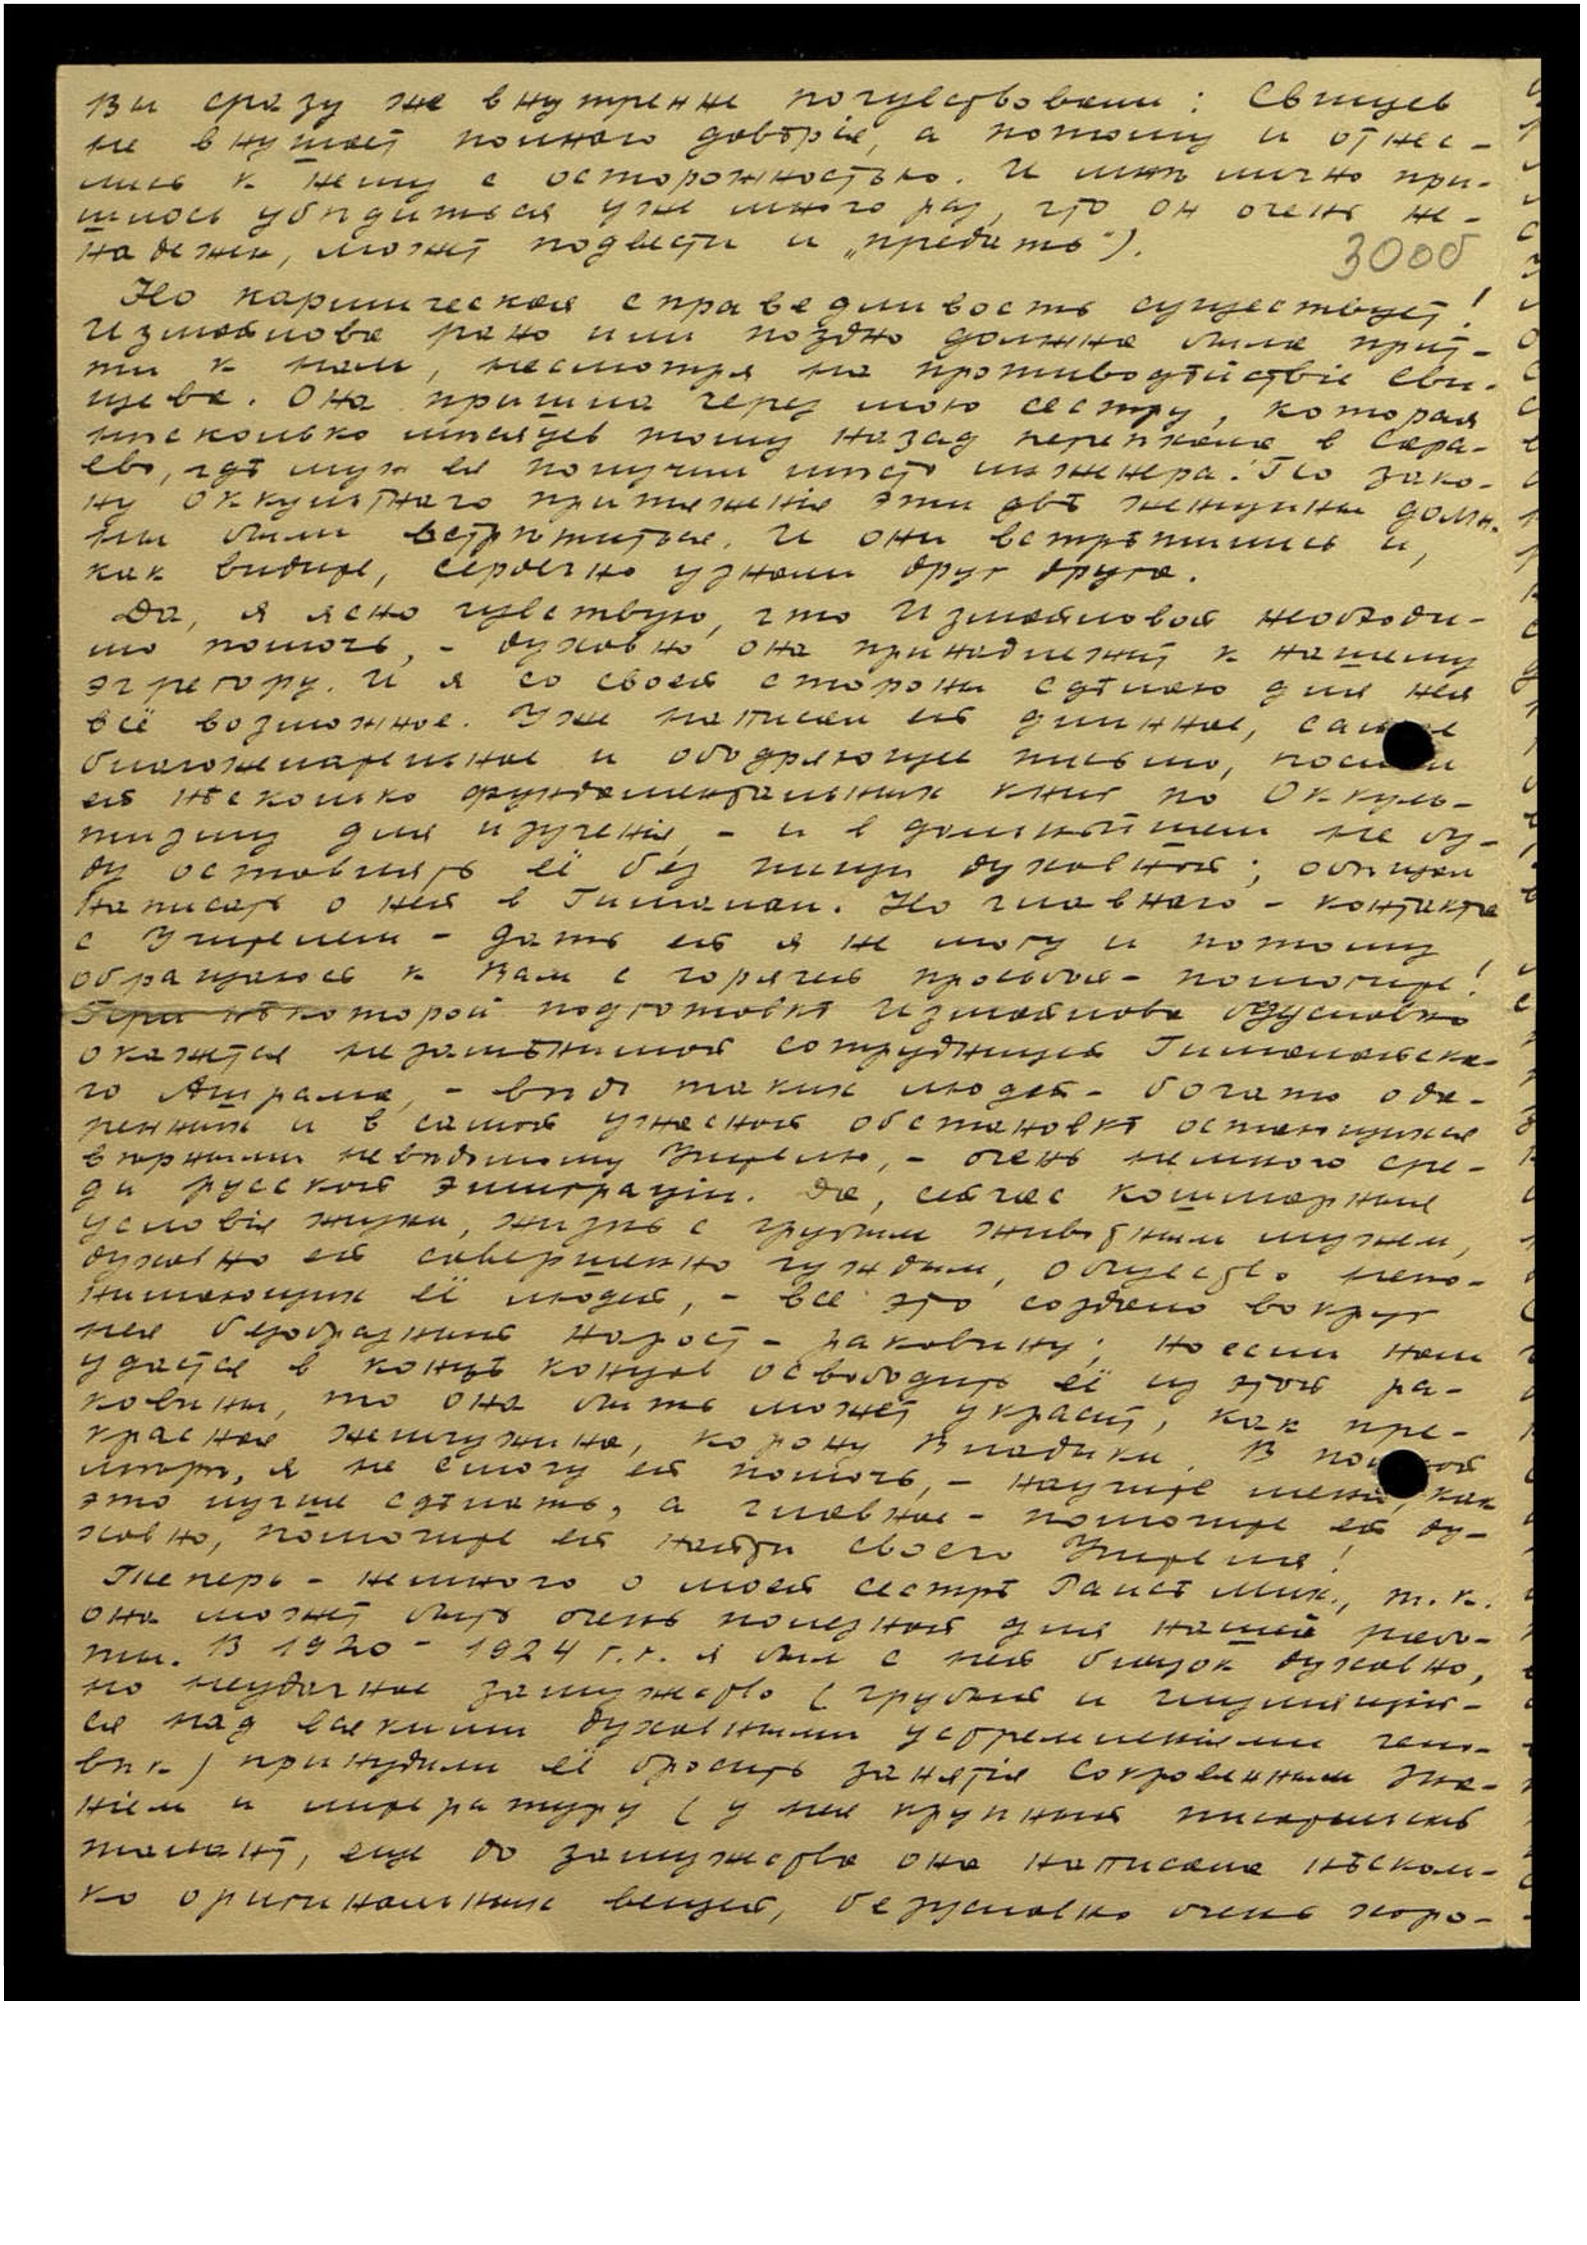 Вы сразу же внутренне почувствовали: Свищев
не внушает полнаго довѣрія, а потому и отнес-
лись к нему с осторожностью. И мнѣ лично при-
шлось убѣдиться уже много раз, что он очень не-
надежен, может подвести и „предать").
30об
Но кармическая справедливость существует!
Измайлова рано или поздно должна была прій-
ти к нам, несмотря на противодѣйствіе Сви-
щева. Она пришла через мою сестру, которая
нѣсколько мѣсяцев тому назад переѣхала в Сара-
ево, гдѣ муж ея получил мѣсто инженера. По зако-
ну оккультнаго притяженія эти двѣ женщины долж-
ны были встрѣтиться. И они встрѣтились и,
как видите, сердечно узнали друг друга.
Да, я ясно чувствую, что Измайловой необходи-
мо помочь, - духовно она принадлежит к нашему
эгрегору. И я со своей стороны сдѣлаю для нея
всё возможное. Уже написал ей длинное, самое
благожелательное и ободряющее письмо, послал
ей нѣсколько фундаментальных книг по Оккуль-
тизму для изученія, - и в дальнѣйшем не бу-
ду оставлять её без пищи духовной; обѣщал
написать о ней в Гималаи. Но главнаго - контакта
с Учителем - дать ей я не могу и потому
обращаюсь к Вам с горячей просьбой - помогите!
При нѣкоторой подготовкѣ Измайлова безусловно
окажется незамѣнимой сотрудницей Гималайска-
го Ашрама, - вѣдь таких людей - богато ода-
ренных и в самой ужасной обстановкѣ остающихся
вѣрными невидимому Учителю, - очень немного сре-
ди русской эмиграціи. Да, сейчас кошмарныя
условія жизни, жизнь с грубым животным мужем,
духовно ей совершенно чуждым, общество непо-
нимающих её людей, - все это создало вокруг
нея безобразный нарост - раковину; но если нам
удастся в концѣ концов освободить её из этой ра-
ковины, то она быть может украсит, как пре-
красная жемчужина, корону Владыки. В полной
мѣрѣ, я не смогу ей помочь, - научите меня, как
это лучше сдѣлать, а главное - помогите ей ду-
ховно, помогите ей найти своего Учителя!
Теперь - немного о моей сестрѣ Раисѣ Мих., т. к.
она может быть очень полезной для нашей рабо-
ты. В 1920 - 1924 г.г. я был с ней близок духовно,
но неудачное замужество (грубый и глумящій-
ся над всякими духовными устремленіями чело-
вѣк) принудили её бросить занятія Сокровенным Зна-
ніем и литературу (у нея крупный писательскій
талант, еще до замужества она написала нѣсколь-
ко оригинальных вещей, безусловно очень хоро-